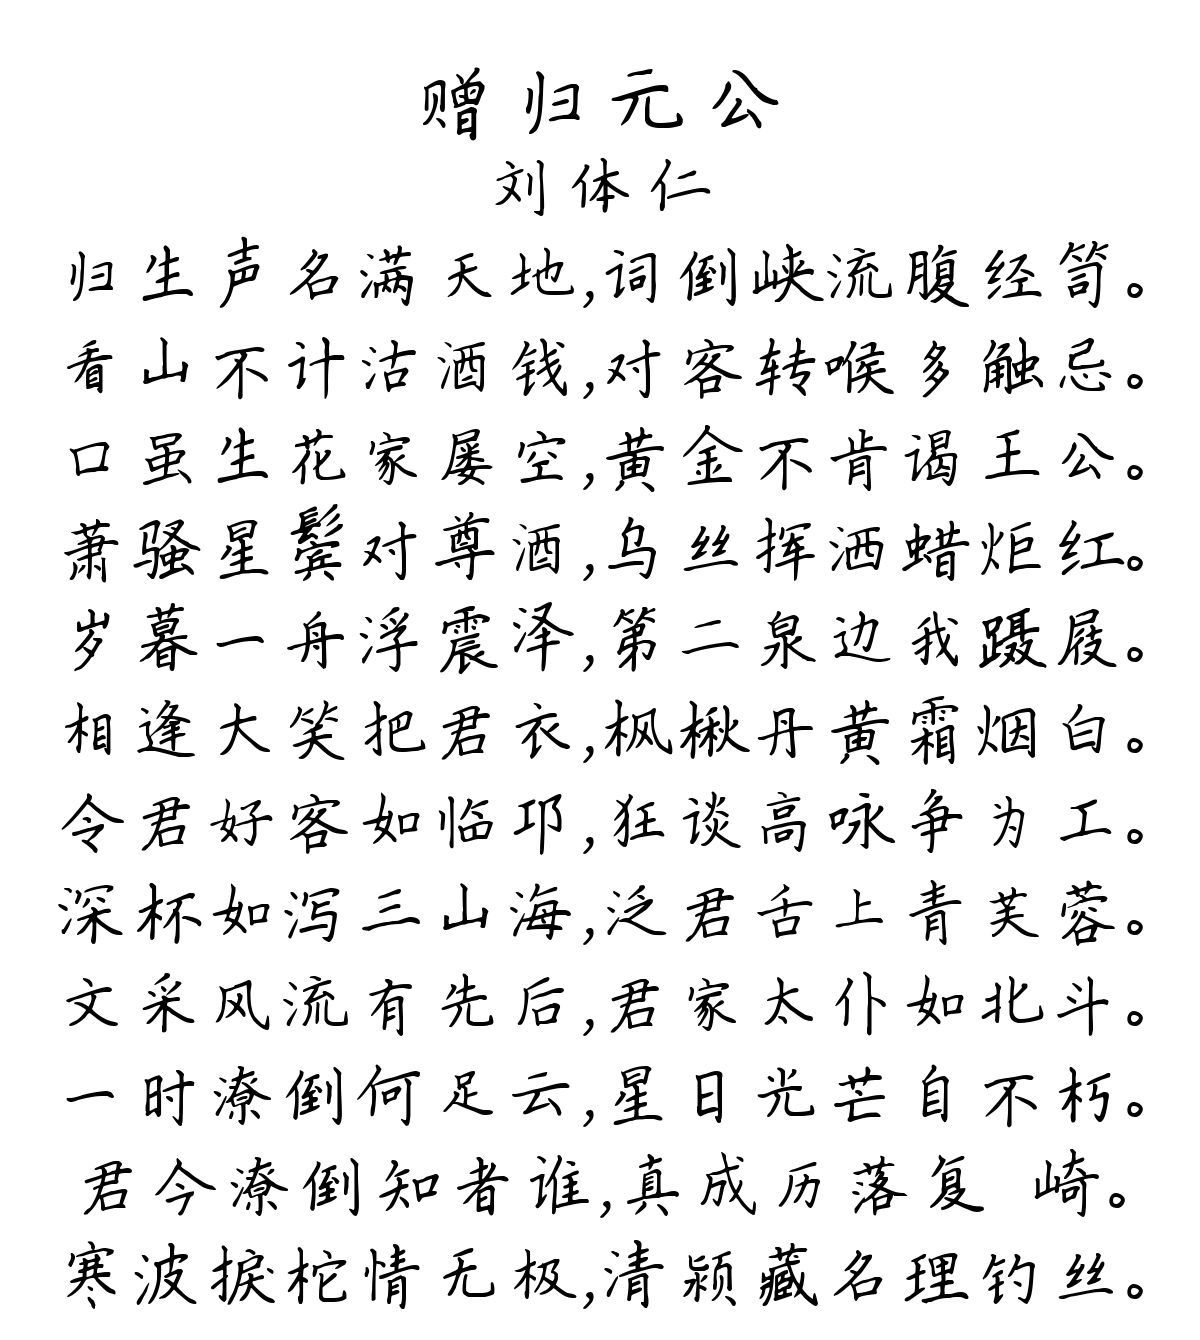 赠归元公
刘体仁
归生声名满天地,词倒峡流腹经笥。
看山不计沽酒钱,对客转喉多触忌。
口虽生花家屡空,黄金不肯谒王公。
萧骚星鬓对尊酒,乌丝挥洒蜡炬红。
岁暮一舟浮震泽,第二泉边我蹑屐。
相逢大笑把君衣,枫楸丹黄霜烟白。
令君好客如临邛,狂谈高咏争为工。
深杯如泻三山海,泛君舌上青芙蓉。
文采风流有先后,君家太仆如北斗。
一时潦倒何足云,星日光芒自不朽。
君今潦倒知者谁,真成历落复 崎。
寒波捩柁情无极,清颍藏名理钓丝。